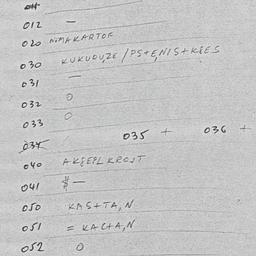 012 —
020 NIMAKARTOF
030 KUKUDUZE / PSTENISTKEES
031 —
032 0
033 0
034 035 + 036 +
040 AKSEPLKROST
041 —
050 KASTTA,N
051 = KACTA,N
052 0